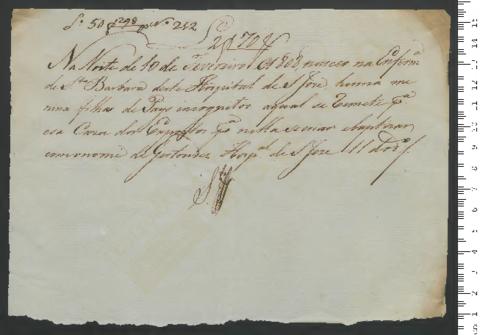 Lº 50 fl 298 Nº 252
Lº 2 fl 70
Na Noite de 10 de Fevereiro d 1803 nasceo na Enfermª
de Stª Barbara deste Hospital de S Joze, huma me
nina filha de Pays incognitos aqual se remete pª
esa Caza dos Expostos pª nella se criar ebaptizar
com o nome de Hospal de S Joze 11 do dº